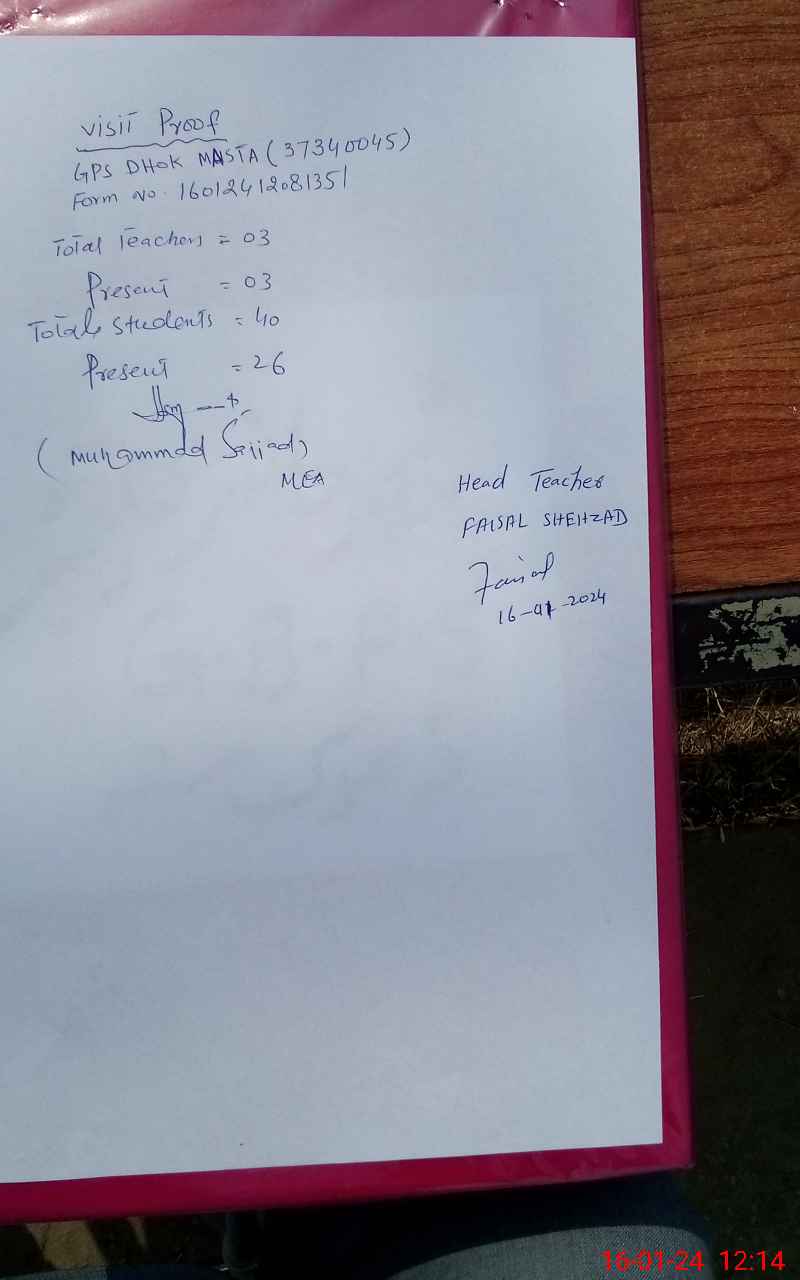 Visit Proof
GPS DHOK MASTA (37340045)
Form No. 16012412081351
Total Teachers = 03
Present = 03
Total Students = 40
Present = 26
(Muhammad Sajjad)
MEA
Head Teacher
FAISAL SHEHZAD
Faisal
16-01-2024
16-01-24 12:14